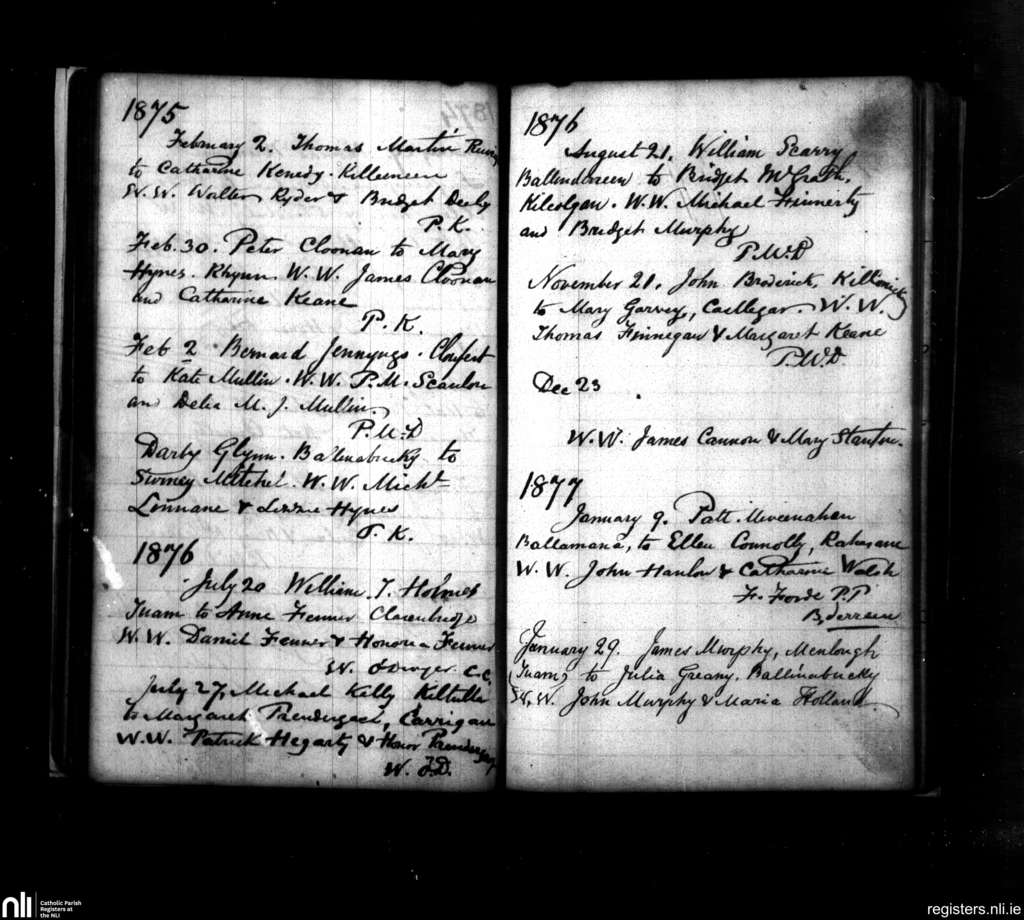 1875
February 2. Thomas Martin
to Catharine Kenedy. Killeeneen
W. W. Walter Ryder & Bridget Deely
P. K.
Feb. 30. Peter Cloonan to Mary
Hynes. Rhynn. W. W. James Cloonan
and Catharine Keane
P. K.
Feb 2 Bernard Jennyngs. Clonfert
to Kate Mullin. W. W. P. M. Scanlon
and Delia M. J. Mullin.
P. M. D
Darby Glynn. Ballinabucky to
Mitchel. W. W. Michl
Linnane & Lizzie Hynes
J. K.
1876
July 20 William J. Holmes
Tuam to Anne Fenner Clarenbridge
W. W. Daniel Fenner & Honoria Fenner
W. O'Dwyer C.C.
July 27, Michael Kelly Kiltulla
to Margaret Prendergast, Carrigan
W. W. Patrick Hegarty & Honor Prendergast
W. J. D.
1876
August 21. William Scarry
Ballinderreen to Bridget McGrath,
Kilcolgan. W. W. Michael Finnerty
and Bridget Murphy
P. W. D
November 21. John Broderick,
to Mary Garvey, Castlegar. W. W.
Thomas Finnegan & Margaret Keane
P. W. D.
Dec 23
W. W. James Cannon & Mary Stanton.
1877
January 9. Patt
Ballamana, to Ellen Connolly, Rahasane
W. W. John Hanlon & Catharine Walsh
F. Forde P.P
January 29. James Murphy, Menlough
(Tuam) to Julia Greany. Ballinabucky
W. W. John Murphy & Maria Holland
nli Catholic Parish
Registers at
the NLI
registers.nli.ie